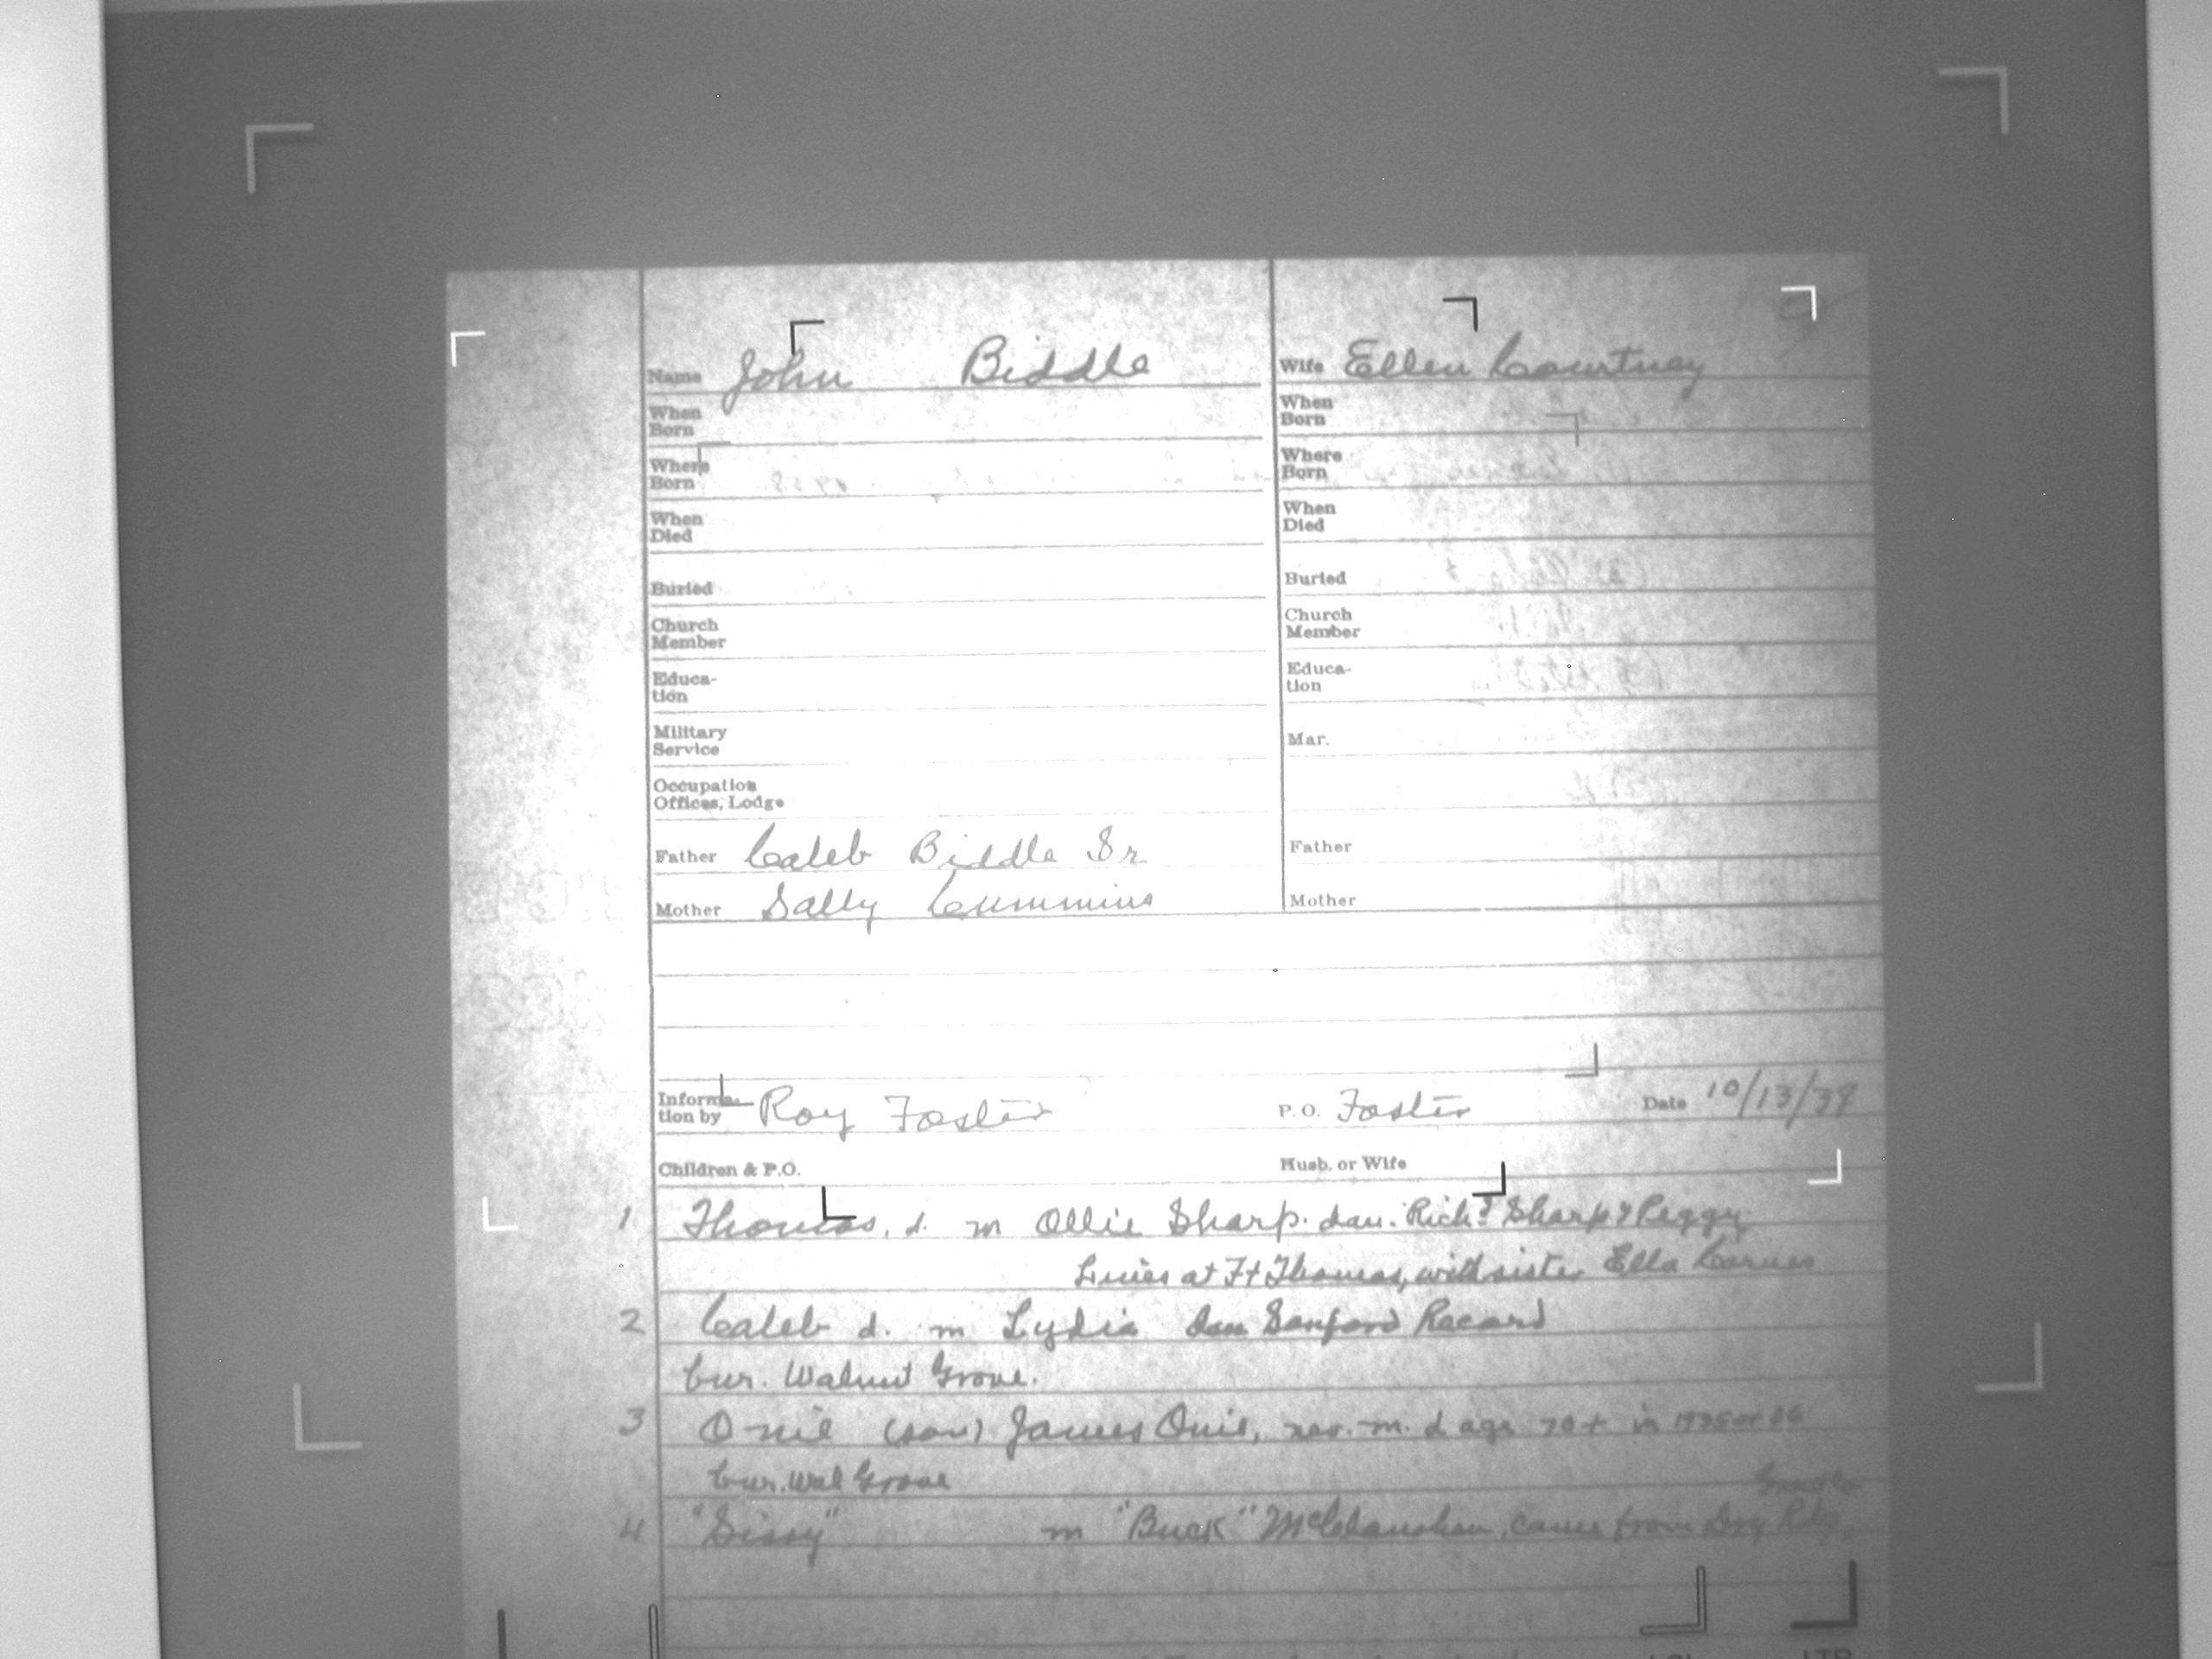 Name John Biddle Wife Ellen Courtney
When Born When Born
Where Born Where Born
When Died When Died
Buried Buried
Church Member Church Member
Educa- tion Educa- tion
Military Service Mar.
Occupation Offices, Lodge
Father Caleb Biddle Sr Father
Mother Sally Cummins Mother
Informa- tion by Roy Foster P. O. Foster Date 10/13/38
Children & P.O. Husb. or Wife
1 Thomas, d. m Ollie Sharp. dau. Richd Sharp & Peggy
Lives at Ft Thomas, with sister Ella Carnes
2 Caleb d. m Lydia dau Sanford Record
bur. Walnut Grove.
3 Onie (son) James Onie, nev. m. d age 70+ in 1935 or 36
bur. Wal Grove
4 "Sissy" m "Buck" McClanahan, came from Dry Rdg.